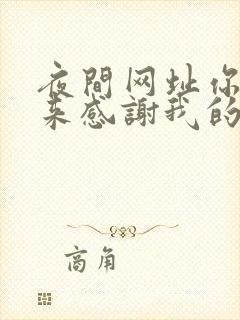 夜間网址你
来感謝我的
商角